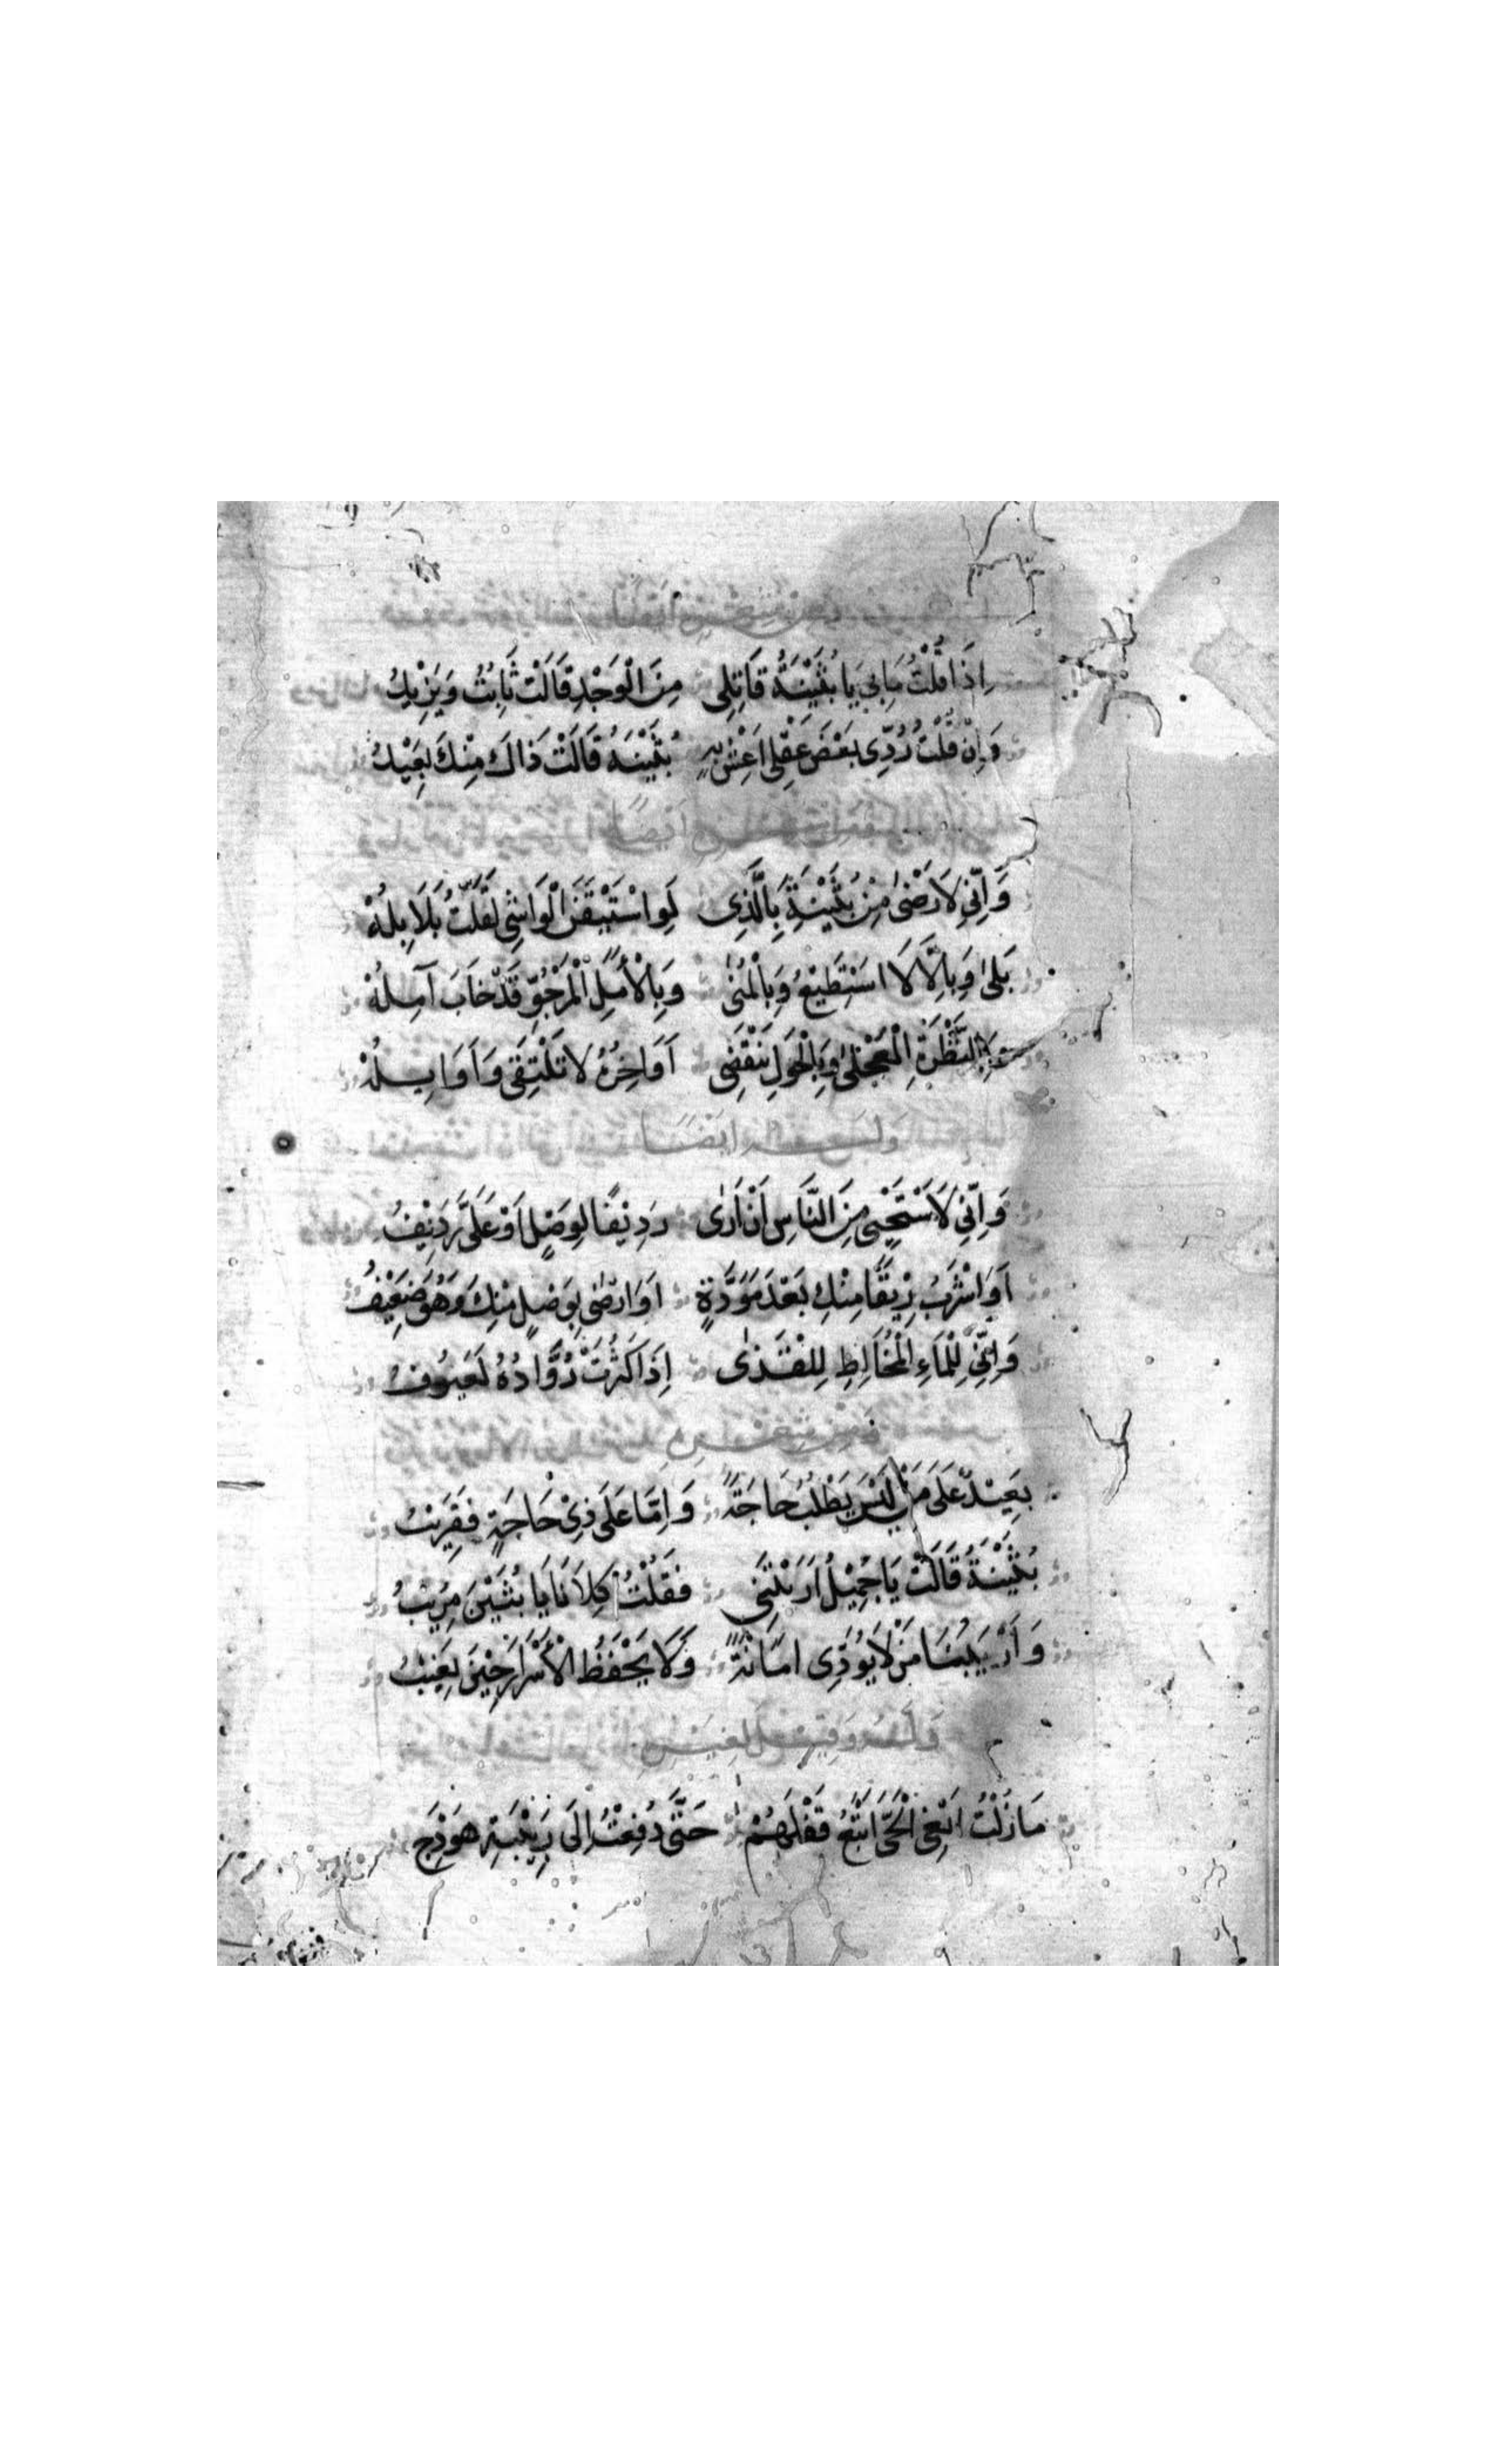 اِذَا قُلْتُ مَا بِي يَا بُثَيْنَةُ قَاتِلِى مِنَ الْوَجْدِ قَالَتْ ثَابِتٌ وَيَزِيْدُ
وَاِنْ قُلْتُ رُدِّى بَعْضَ عَقْلِى اَعِشْ بِهِ بُثَيْنَةُ قَالَتْ ذَاكَ مِنْكَ بَعِيْدُ
وَاِنِّى لَاَرْضٰى مِنْ بُثَيْنَةَ بِالَّذِى لَوِ اسْتَيْقَنَ الْوَاشِى لَقَلَّتْ بَلَابِلُهْ
بَلٰى وَبِاَلَّا لَا اَسْتَطِيْعُ وَبِالْمُنٰى وَبِالْأَمَلِ الْمَرْجُوِّ قَدْ خَابَ آمِلُهْ
وَبِالنَّظْرَةِ الْعَجْلٰى وَبِالْحَوْلِ يَنْقَضِى اَوَاخِرُهُ لَا تَلْتَقِى وَاَوَايِلُهْ
وله ايضًا
وَاِنِّى لَاَسْتَحْيِى مِنَ النَّاسِ اَنْ اَرٰى رَدِيْفًا لِوَصْلٍ اَوْ عَلَىَّ رَدِيْفُ
اَوَاشْرَبُ رِيْقًا مِنْكِ بَعْدَ مَوَدَّةٍ اَوَارْضٰى بِوَصْلٍ مِنْكِ وَهُوَ ضَعِيْفُ
وَاِنِّى لِلْمَاءِ الْمُخَالِطِ لِلْقَذٰى اِذَا كَثُرَتْ رُوَّادُهُ لَعَيُوْفُ
بَعِيْدٌ عَلَى مَنْ لَيْسَ يَطْلُبُ حَاجَةً وَاِمَّا عَلَى ذِىْ حَاجَةٍ فَقَرِيْبُ
بُثَيْنَةُ قَالَتْ يَا جَمِيْلُ اَرَبْتَنِى فَقُلْتُ كِلَانَا يَا بُثَيْنَ مُرِيْبُ
وَاَرْيَبُنَا مَنْ لَا يُؤَدِّى اَمَانَةً وَلَا يَحْفَظُ الْأَسْرَارَ حِيْنَ يَغِيْبُ
مَازُلْتُ اَبْغِى الْحَىَّ اَتْبَعُ فَلَّهُمْ حَتَّى دُفِعْتُ اِلَى رَبِيْبَةِ هَوْدَجِ